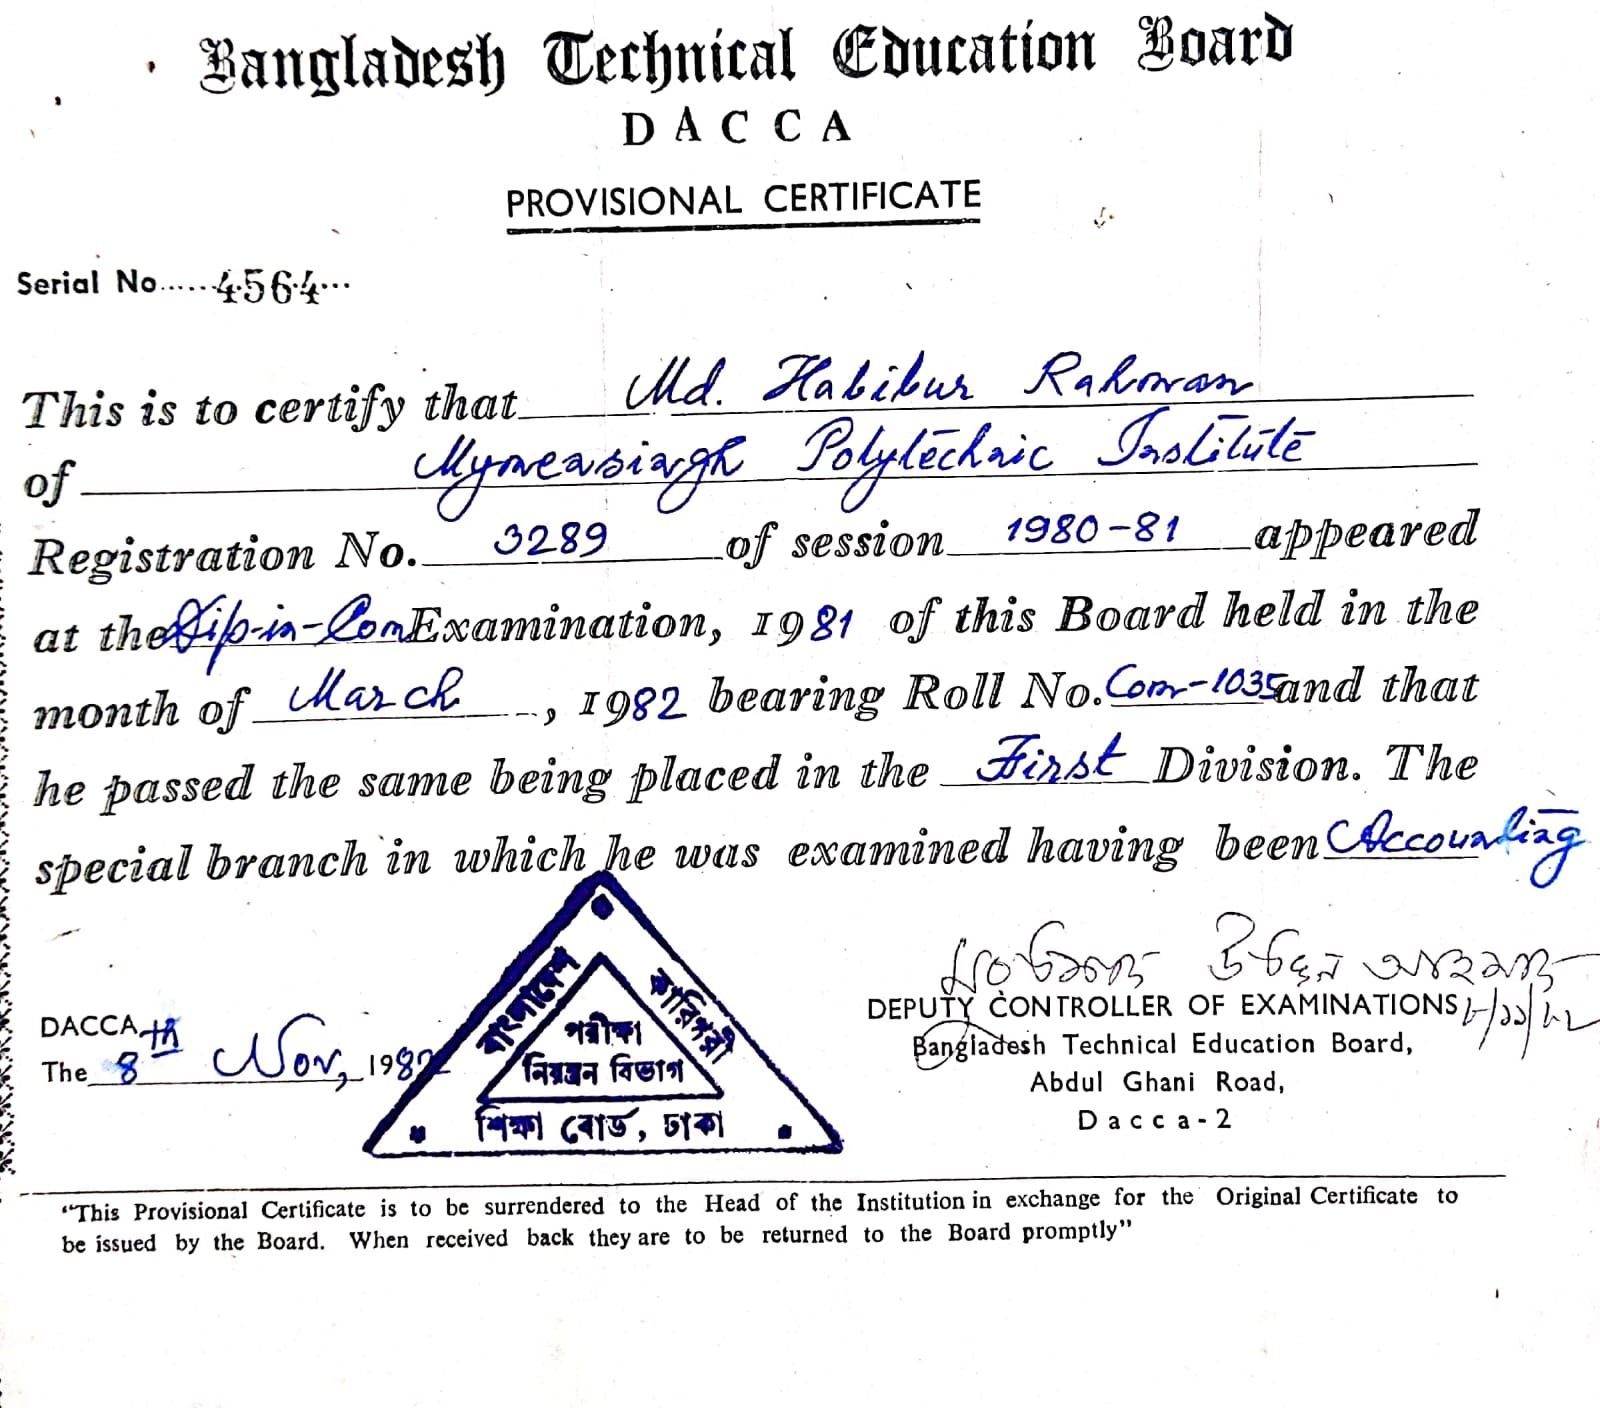 Bangladesh Technical Education Board
DACCA
PROVISIONAL CERTIFICATE
Serial No......4564...
This is to certify that Md. Habibur Rahman
of Mymensingh Polytechnic Institute
Registration No. 3289 of session 1980-81 appeared
at the Dip-in-Com Examination, 1981 of this Board held in the
month of March, 1982 bearing Roll No. Com-1035 and that
he passed the same being placed in the First Division. The
special branch in which he was examined having been Accounting
DEPUTY CONTROLLER OF EXAMINATIONS ৮/১১/৮২
Bangladesh Technical Education Board,
Abdul Ghani Road,
Dacca-2
DACCA
The 8th Nov, 1982
বাংলাদেশ কারিগরী
পরীক্ষা
নিয়ন্ত্রন বিভাগ
শিক্ষা বোর্ড, ঢাকা
"This Provisional Certificate is to be surrendered to the Head of the Institution in exchange for the Original Certificate to
be issued by the Board. When received back they are to be returned to the Board promptly"